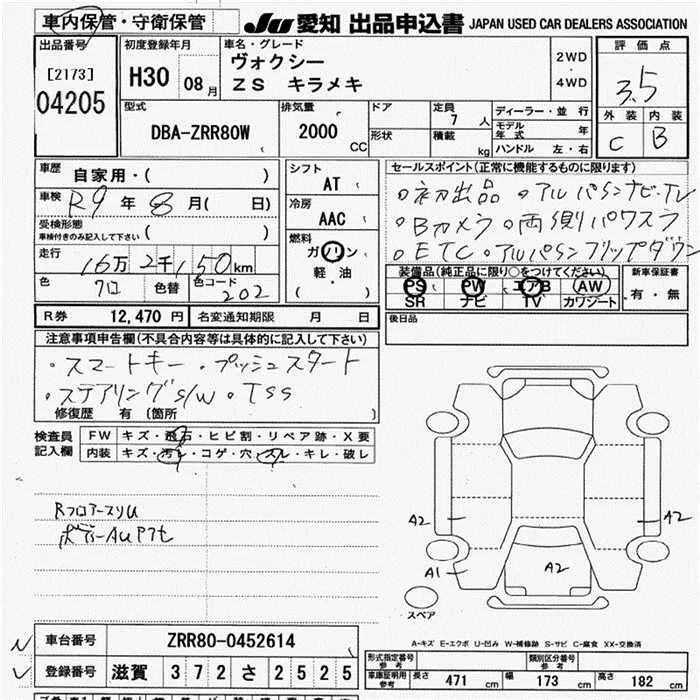 車内保管・守衛保管
JU 愛知 出品申込書 JAPAN USED CAR DEALERS ASSOCIATION
出品番号
[2173]
04205
初度登録年月
H30 08月
車名・グレード
ヴォクシー
ZS キラメキ
2WD
・
4WD
評価点
3.5
外装 内装
C B
型式
DBA-ZRR80W
排気量
2000 CC
ドア
形状
定員
7 人
積載 kg
ディーラー・並行
モデル年式 年
ハンドル 左・右
車歴 自家用・( )
車検 R9年 8月( 日)
受検形態
車検付きのみ記入して下さい ( )
走行 16万2千150km
色 7口 色替 色コード 202
シフト
AT
冷房
AAC
燃料
ガソリン
軽・油
( )
セールスポイント(正常に機能するものに限ります)
○初出品 ○アルパインナビ・TV
○Bカメラ ○両側パワスラ
○ETC ○アルパインフリップダウン
装備品(純正品に限り○をつけてください)
PS PW エアB AW
SR ナビ TV カワシート
新車保証書
有・無
後日品
R券 12,470 円 名変通知期限 月 日
注意事項申告欄(不具合内容等は具体的に記入して下さい)
・スマートキー ・プッシュスタート
・ステアリングs/w ・TSS
修復歴 有 (箇所 )
検査員記入欄
FW キズ・飛石・ヒビ割・リペア跡・X要
内装 キズ・汚レ・コゲ・穴・スレ・キレ・破レ
RフロアースリU
ボデーAUP7セ
A2
A2
A1
A2
スペア
A-キズ E-エクボ U-凹み W-補修跡 S-サビ C-腐食 XX-交換済
車台番号 ZRR80-0452614
登録番号 滋賀 372さ2525
形式指定番号 参考
類別区分番号 参考
車庫証明用参考 長さ 471 cm 幅 173 cm 高さ 182 cm